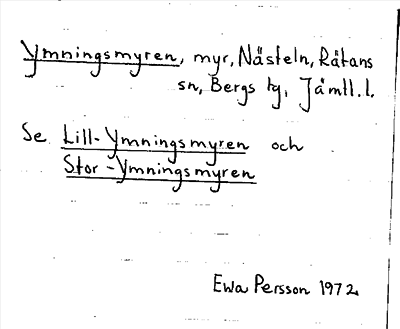 Ymningsmyren, myr, Nästeln, Rätans
sn, Bergs tg, Jämtl. l.
Se Lill-Ymningsmyren och
Stor-Ymningsmyren
Ewa Persson 1972